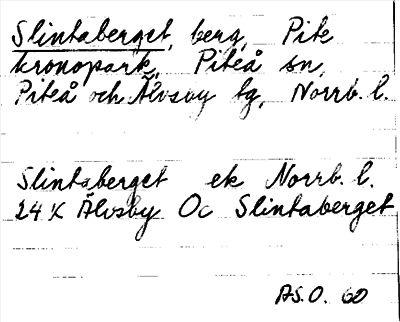 Slintaberget, berg, Pite
kronopark, Piteå sn,
Piteå och Älvsby tg, Norrb. l.
Slintaberget ek Norrb. l.
24 K Älvsby Oc Slintaberget
AS.O. 60